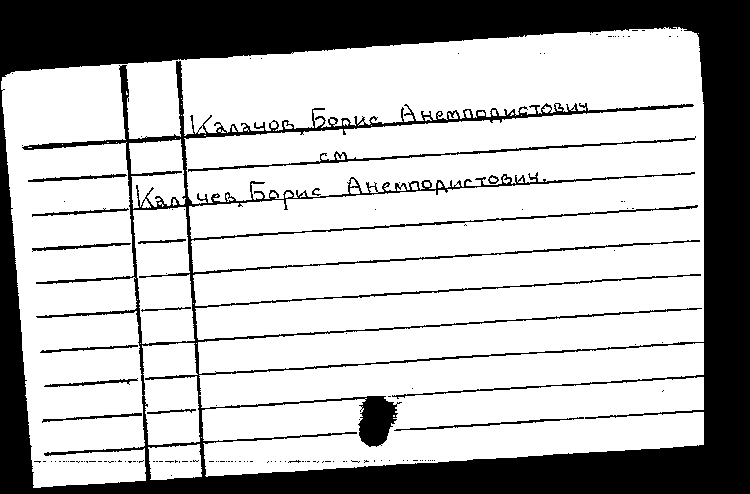 Калачов, Борис Анемподистович
см.
Калачев, Борис Анемподистович.